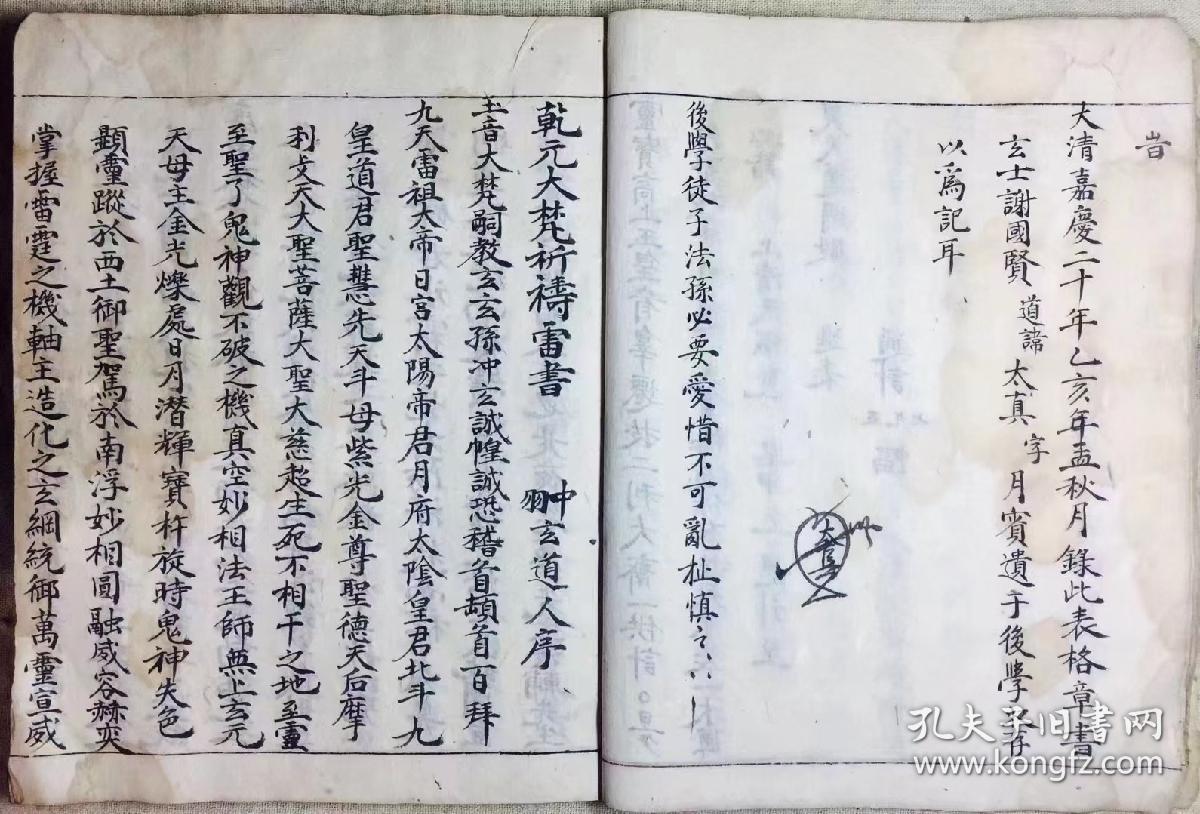 旹
大清嘉慶二十年乙亥年孟秋月錄此表格章書
玄士謝國賢 道諱 太真 字 月賓遺于後學
以為記耳
後學徒子法孫必要愛惜不可亂扯慎之
乾元大梵祈禱雷書 翀玄道人序
玉音大梵嗣教玄玄孫冲玄誠惶誠恐稽首頓首百拜
九天雷祖大帝日宮太陽帝君月府太陰皇君北斗九
皇道君聖慧先天斗母紫光金尊聖德天后摩
利支天大聖菩薩大聖大慈超生死不相干之地至靈
至聖了鬼神觀不破之機真空妙相法王師無上玄元
天母主金光爍處日月潛輝寶杵旋時鬼神失色
顯靈蹤於西土御聖駕於南浮妙相圓融威容赫奕
掌握雷霆之機軸主造化之玄綱統御萬靈宣威
孔夫子旧書网
www.kongfz.com